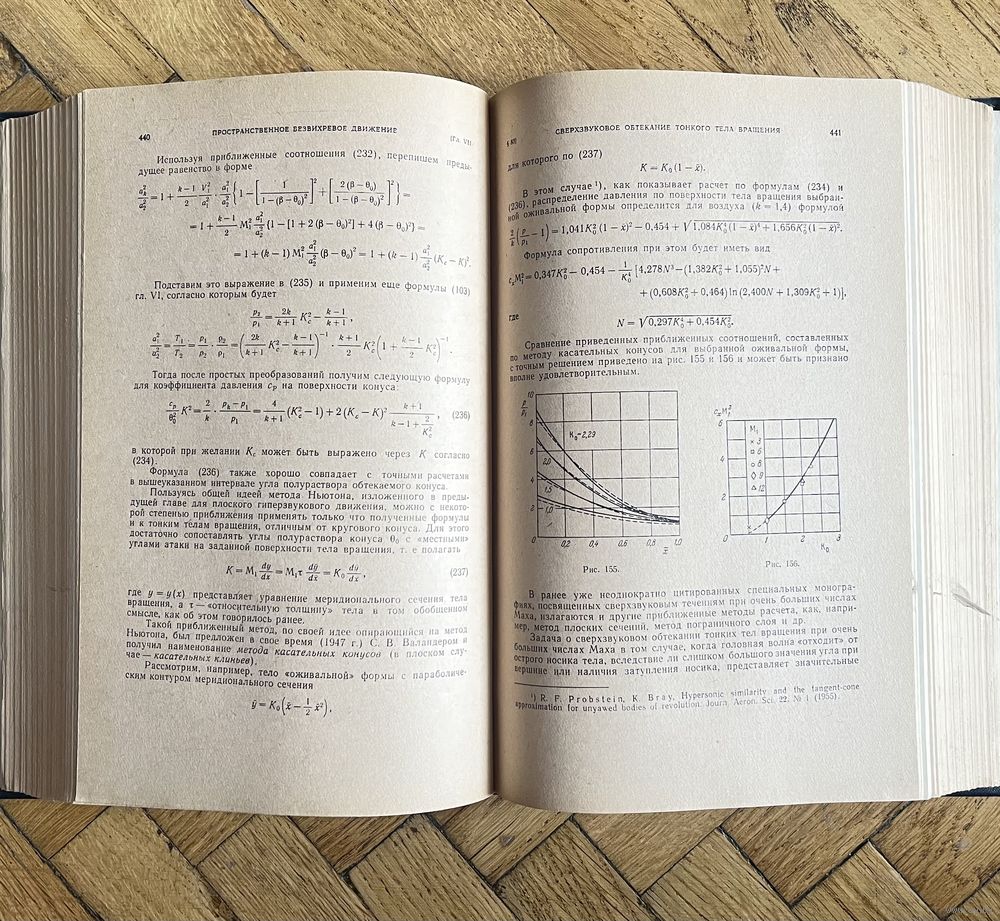 440 ПРОСТРАНСТВЕННОЕ БЕЗВИХРЕВОЕ ДВИЖЕНИЕ (ГЛ. VII
Используя приближенные соотношения (232), перепишем преды-
дущее равенство в форме
= 1 + (k − 1) M₁² a₁²/a₂² (β − θ₀)² = 1 + (k − 1) a₁²/a₂² (K_c − K)².
Подставим это выражение в (235) и применим еще формулы (103)
гл. VI, согласно которым будет
p₂/p₁ = 2k/(k+1) K_c² − (k−1)/(k+1),
a₁²/a₂² = T₁/T₂ = p₁/p₂ · ρ₂/ρ₁ = (2k/(k+1) K_c² − (k−1)/(k+1))⁻¹ · (k+1)/2 K_c² (1 + (k−1)/2 K_c²)⁻¹.
Тогда после простых преобразований получим следующую формулу
для коэффициента давления c_p на поверхности конуса:
c_p/θ₀² K² = 2/k · (p_k − p₁)/p₁ = 4/(k+1) (K_c² − 1) + 2 (K_c − K)² (k+1)/(k − 1 + 2/K_c²), (236)
в которой при желании K_c может быть выражено через K согласно
(234).
Формула (236) также хорошо совпадает с точными расчетами
в вышеуказанном интервале угла полураствора обтекаемого конуса.
Пользуясь общей идеей метода Ньютона, изложенного в преды-
дущей главе для плоского гиперзвукового движения, можно с некото-
рой степенью приближения применять только что полученные формулы
и к тонким телам вращения, отличным от кругового конуса. Для этого
достаточно сопоставлять углы полураствора конуса θ₀ с «местными»
углами атаки на заданной поверхности тела вращения, т. е. полагать
K = M₁ dy/dx = M₁τ dȳ/dx̄ = K₀ dȳ/dx̄, (237)
где y = y(x) представляет уравнение меридионального сечения тела
вращения, а τ — «относительную толщину» тела в том обобщенном
смысле, как об этом говорилось ранее.
Такой приближенный метод, по своей идее опирающийся на метод
Ньютона, был предложен в свое время (1947 г.) С. В. Валландером и
получил наименование метода касательных конусов (в плоском слу-
чае — касательных клиньев).
Рассмотрим, например, тело «оживальной» формы с параболиче-
ским контуром меридионального сечения
ȳ = K₀(x̄ − 1/2 x̄²),
СВЕРХЗВУКОВОЕ ОБТЕКАНИЕ ТОНКОГО ТЕЛА ВРАЩЕНИЯ 441
для которого по (237)
K = K₀ (1 − x̄).
В этом случае ¹), как показывает расчет по формулам (234) и
(236), распределение давления по поверхности тела вращения выбран-
ной оживальной формы определится для воздуха (k = 1,4) формулой
2/k (p/p₁ − 1) = 1,041K₀² (1 − x̄)² − 0,454 + √(1,084K₀⁴(1 − x̄)⁴ + 1,656K₀² (1 − x̄)²).
Формула сопротивления при этом будет иметь вид
c_xM₁² = 0,347K₀² − 0,454 − 1/K₀⁴ [4,278N³ − (1,382K₀² + 1,055)²N +
+ (0,608K₀² + 0,464) ln (2,400N + 1,309K₀² + 1)],
где
N = √(0,297K₀⁴ + 0,454K₀²).
Сравнение приведенных приближенных соотношений, составленных
по методу касательных конусов для выбранной оживальной формы,
с точным решением приведено на рис. 155 и 156 и может быть признано
вполне удовлетворительным.
p/p₁ 10 8 6 4 2 0
K₀=2,29
2,0
1,5
1,0
0,2 0,4 0,6 0,8 x̄ 1,0
Рис. 155.
c_xM₁²
6 4 2 0
M₁
× 3
6
8
◇ 9
△ 12
1 2 K₀ 3
Рис. 156.
В ранее уже неоднократно цитированных специальных моногра-
фиях, посвященных сверхзвуковым течениям при очень больших числах
Маха, излагаются и другие приближенные методы расчета, как, напри-
мер, метод плоских сечений, метод пограничного слоя и др.
Задача о сверхзвуковом обтекании тонких тел вращения при очень
больших числах Маха в том случае, когда головная волна «отходит» от
острого носика тела, вследствие ли слишком большого значения угла при
вершине или наличия затупления носика, представляет значительные
¹) R. F. Probstein, K. Bray, Hypersonic similarity and the tangent-cone
approximation for unyawed bodies of revolution. Journ. Aeron. Sci. 22, № 1 (1955).